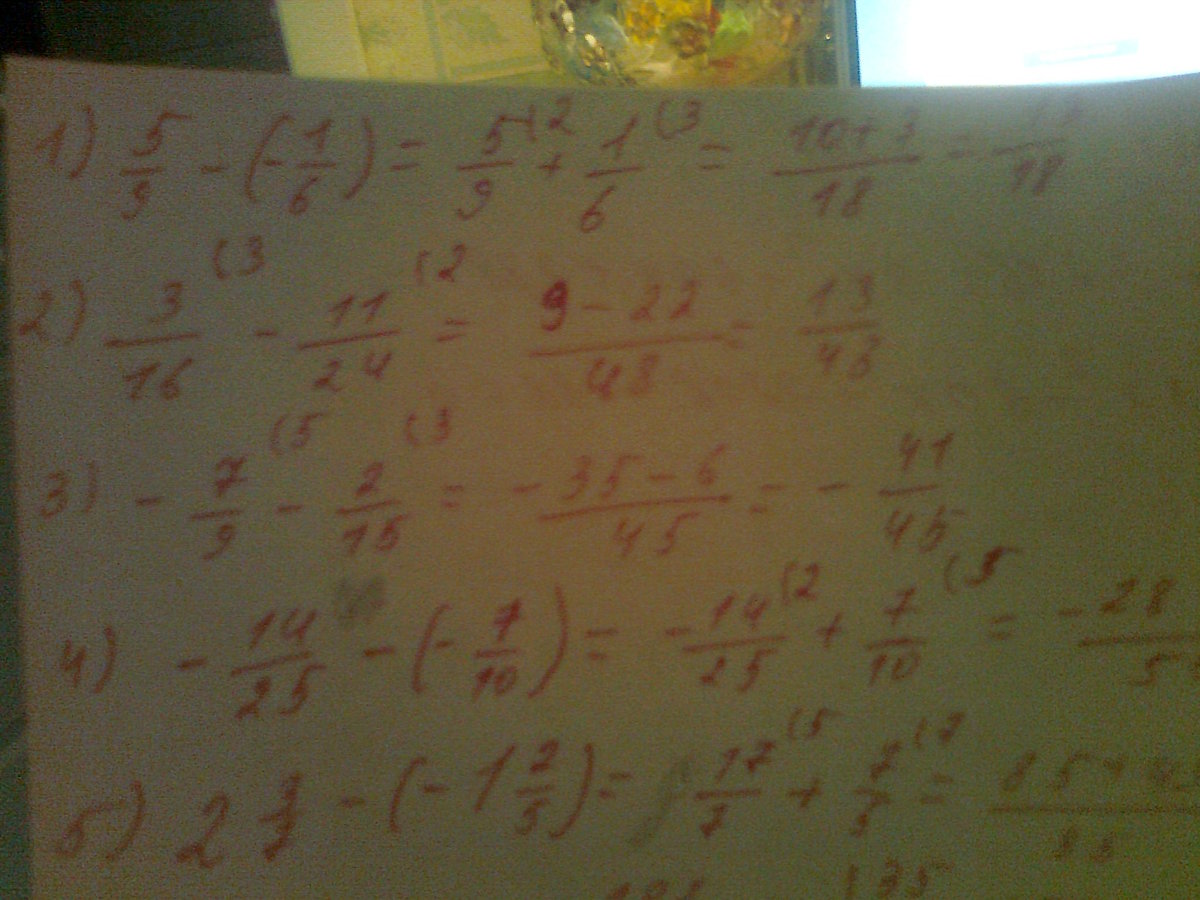 1) 5/9 - (-1/6) = 5/9 (2 + 1/6 (3 = 10+3/18 = /18
2) 3/16 (3 - 11/24 (2 = 9-22/48 = 13/48
3) - 7/9 (5 - 2/15 (3 = - 35-6/45 = - 41/45
4) - 14/25 - (- 7/10) = - 14/25 (2 + 7/10 (5 = - 28/5
5) 2 - (-1 2/5) = 17/7 (5 + 7/5 (7 = 85+4